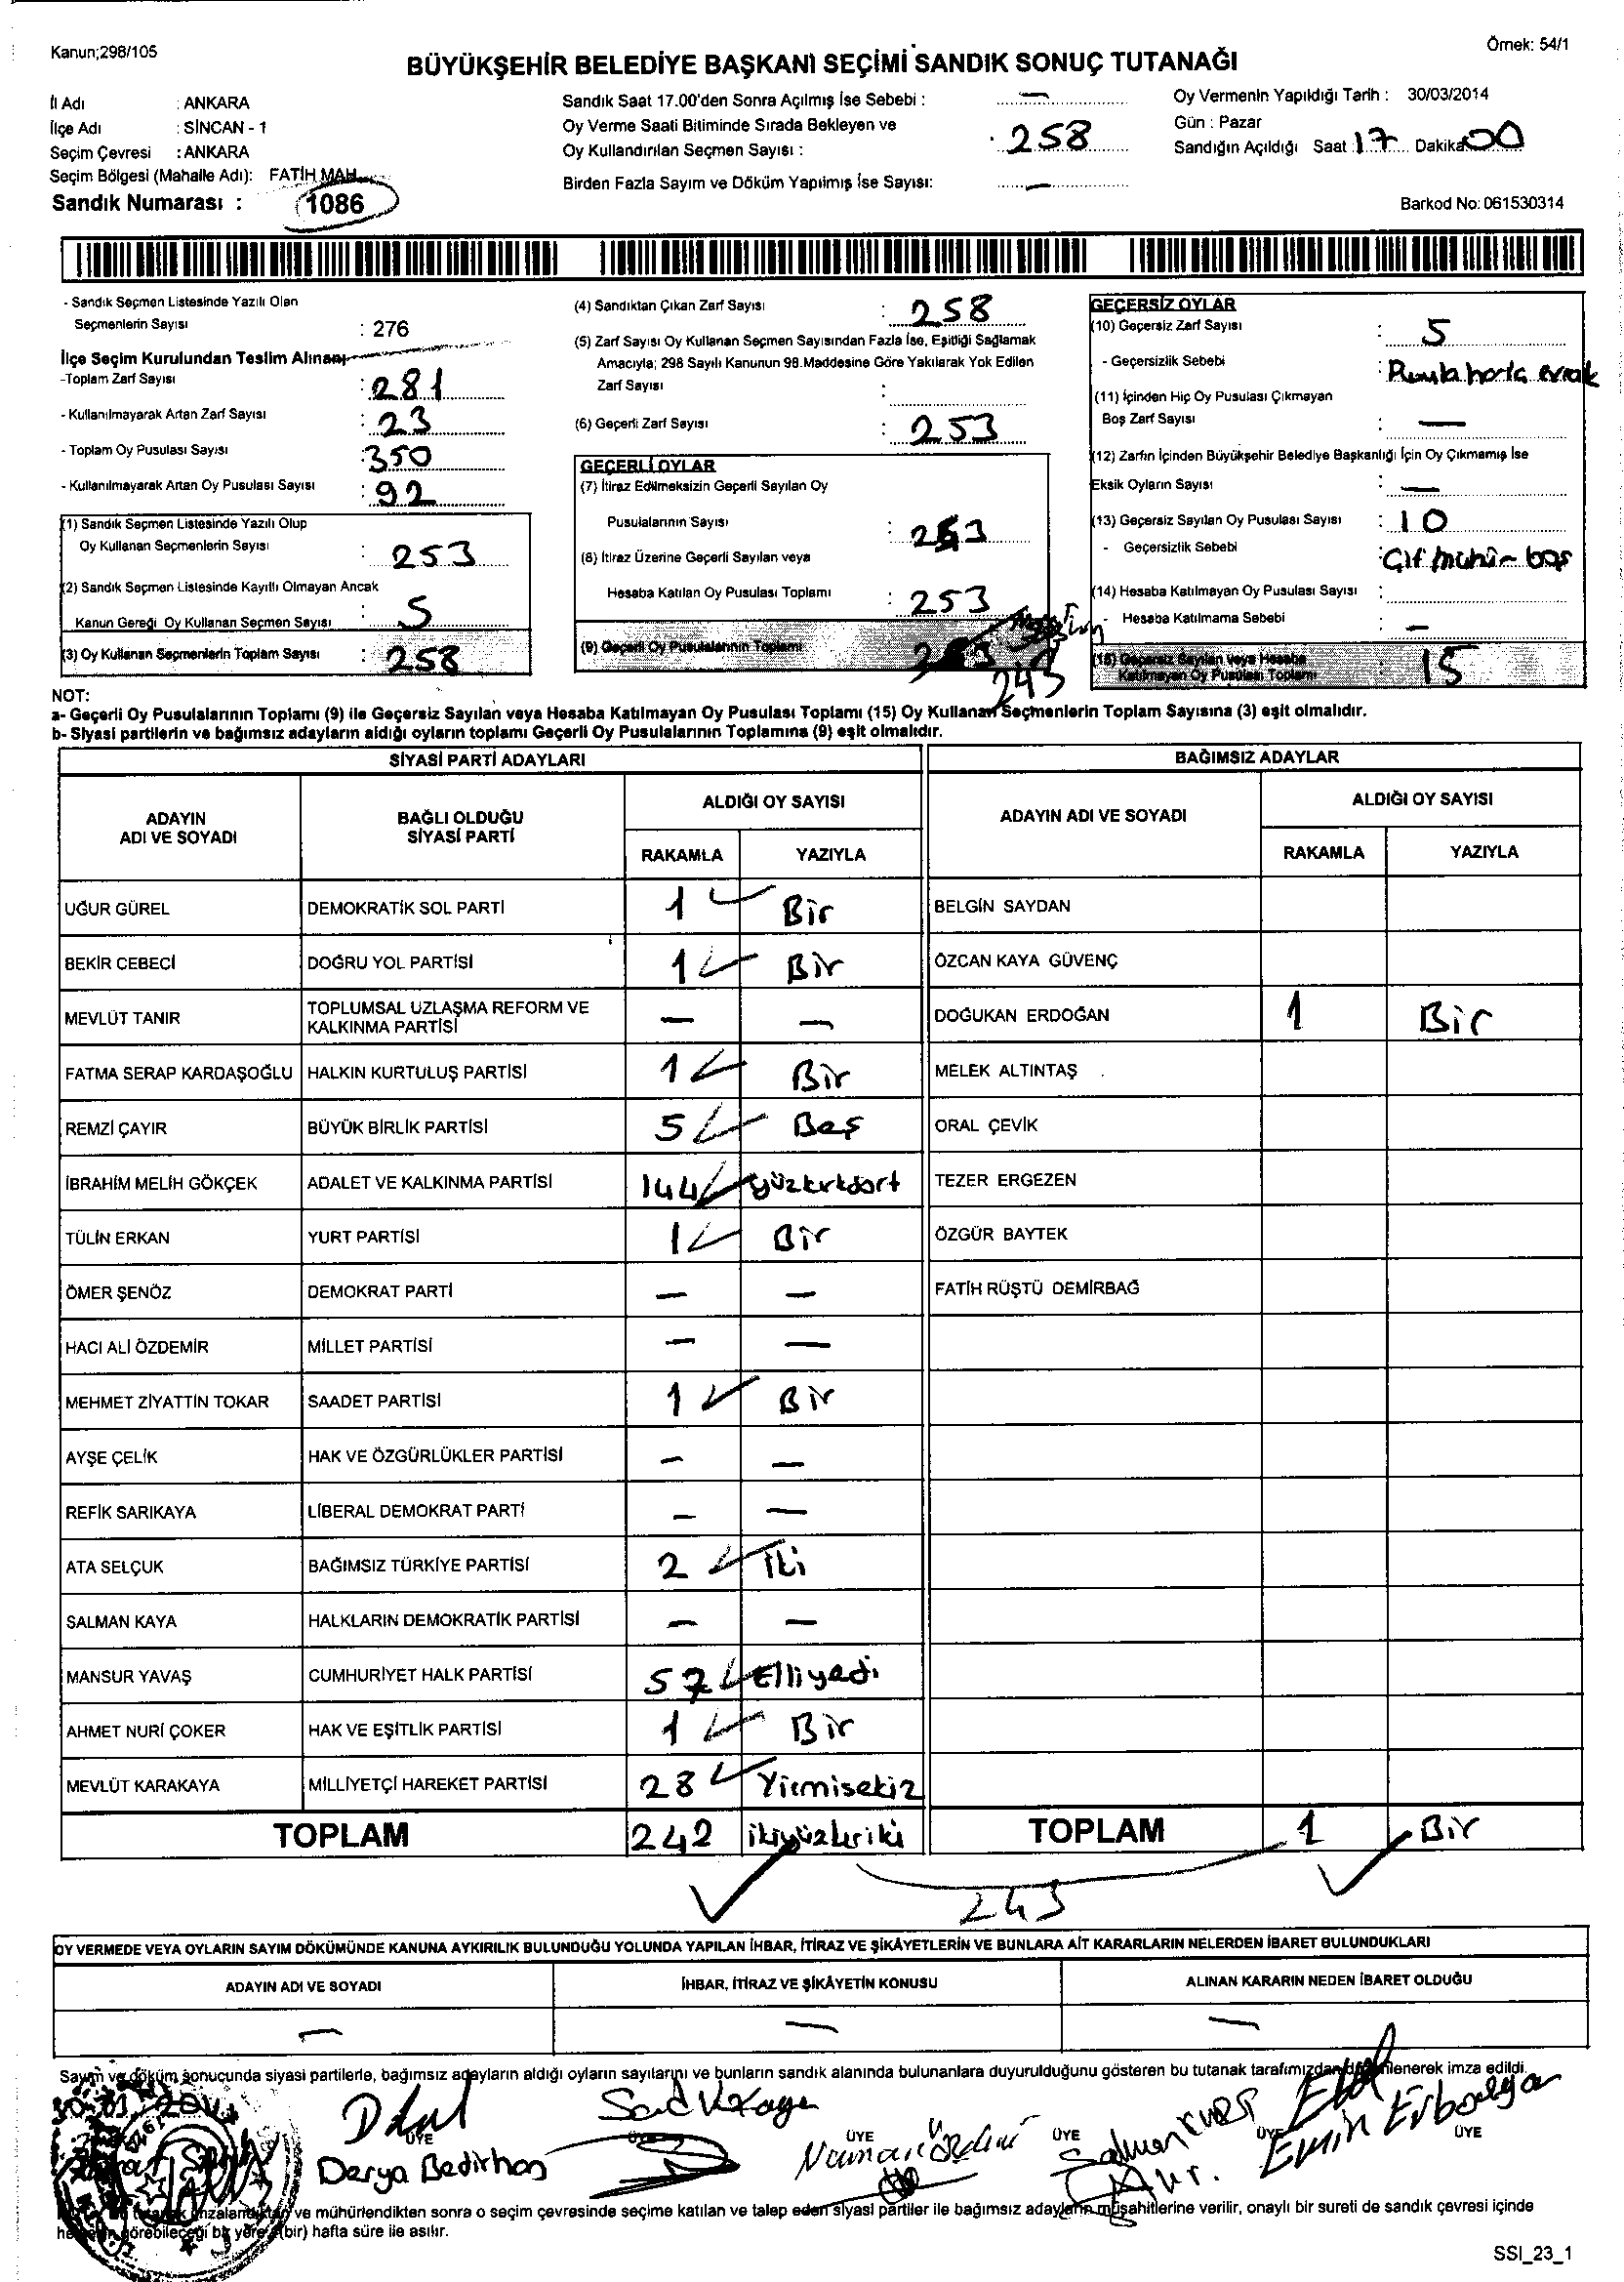 Kanun;298/105
Örnek: 54/1
BÜYÜKŞEHİR BELEDİYE BAŞKANI SEÇİMİ SANDIK SONUÇ TUTANAĞI
İl Adı : ANKARA
İlçe Adı : SİNCAN - 1
Seçim Çevresi : ANKARA
Seçim Bölgesi (Mahalle Adı): FATİH MAH.
Sandık Numarası : 1086
Sandık Saat 17.00'den Sonra Açılmış İse Sebebi : —
Oy Verme Saati Bitiminde Sırada Bekleyen ve
Oy Kullandırılan Seçmen Sayısı : 258
Birden Fazla Sayım ve Döküm Yapılmış İse Sayısı: —
Oy Vermenin Yapıldığı Tarih : 30/03/2014
Gün : Pazar
Sandığın Açıldığı Saat : 17 Dakika 00
Barkod No: 061530314
- Sandık Seçmen Listesinde Yazılı Olan
Seçmenlerin Sayısı : 276
İlçe Seçim Kurulundan Teslim Alınan;
-Toplam Zarf Sayısı : 281
- Kullanılmayarak Artan Zarf Sayısı : 23
- Toplam Oy Pusulası Sayısı : 350
- Kullanılmayarak Artan Oy Pusulası Sayısı : 92
(1) Sandık Seçmen Listesinde Yazılı Olup
Oy Kullanan Seçmenlerin Sayısı : 253
(2) Sandık Seçmen Listesinde Kayıtlı Olmayan Ancak
Kanun Gereği Oy Kullanan Seçmen Sayısı : 5
(3) Oy Kullanan Seçmenlerin Toplam Sayısı : 258
(4) Sandıktan Çıkan Zarf Sayısı : 258
(5) Zarf Sayısı Oy Kullanan Seçmen Sayısından Fazla İse, Eşitliği Sağlamak
Amacıyla; 298 Sayılı Kanunun 98.Maddesine Göre Yakılarak Yok Edilen
Zarf Sayısı :
(6) Geçerli Zarf Sayısı : 253
GEÇERLİ OYLAR
(7) İtiraz Edilmeksizin Geçerli Sayılan Oy
Pusulalarının Sayısı : 253
(8) İtiraz Üzerine Geçerli Sayılan veya
Hesaba Katılan Oy Pusulası Toplamı : 253
(9) Geçerli Oy Pusulalarının Toplamı
243
GEÇERSİZ OYLAR
(10) Geçersiz Zarf Sayısı : 5
- Geçersizlik Sebebi : evrak
(11) İçinden Hiç Oy Pusulası Çıkmayan
Boş Zarf Sayısı : —
(12) Zarfın İçinden Büyükşehir Belediye Başkanlığı İçin Oy Çıkmamış İse
Eksik Oyların Sayısı : —
(13) Geçersiz Sayılan Oy Pusulası Sayısı : 10
- Geçersizlik Sebebi : Çift mühür- boş
(14) Hesaba Katılmayan Oy Pusulası Sayısı :
Hesaba Katılmama Sebebi : —
(15) Geçersiz Sayılan veya Hesaba
Katılmayan Oy Pusulası Toplamı : 15
NOT:
a- Geçerli Oy Pusulalarının Toplamı (9) ile Geçersiz Sayılan veya Hesaba Katılmayan Oy Pusulası Toplamı (15) Oy Kullanan Seçmenlerin Toplam Sayısına (3) eşit olmalıdır.
b- Siyasi partilerin ve bağımsız adayların aldığı oyların toplamı Geçerli Oy Pusulalarının Toplamına (9) eşit olmalıdır.
SİYASİ PARTİ ADAYLARI
ADAYIN ADI VE SOYADI BAĞLI OLDUĞU SİYASİ PARTİ ALDIĞI OY SAYISI
RAKAMLA YAZIYLA
UĞUR GÜREL DEMOKRATİK SOL PARTİ 1 Bir
BEKİR CEBECİ DOĞRU YOL PARTİSİ 1 Bir
MEVLÜT TANIR TOPLUMSAL UZLAŞMA REFORM VE KALKINMA PARTİSİ — —
FATMA SERAP KARDAŞOĞLU HALKIN KURTULUŞ PARTİSİ 1 Bir
REMZİ ÇAYIR BÜYÜK BİRLİK PARTİSİ 5 Beş
İBRAHİM MELİH GÖKÇEK ADALET VE KALKINMA PARTİSİ 144 yüzkırkdört
TÜLİN ERKAN YURT PARTİSİ 1 Bir
ÖMER ŞENÖZ DEMOKRAT PARTİ — —
HACI ALİ ÖZDEMİR MİLLET PARTİSİ — —
MEHMET ZİYATTİN TOKAR SAADET PARTİSİ 1 Bir
AYŞE ÇELİK HAK VE ÖZGÜRLÜKLER PARTİSİ — —
REFİK SARIKAYA LİBERAL DEMOKRAT PARTİ — —
ATA SELÇUK BAĞIMSIZ TÜRKİYE PARTİSİ 2 İki
SALMAN KAYA HALKLARIN DEMOKRATİK PARTİSİ — —
MANSUR YAVAŞ CUMHURİYET HALK PARTİSİ 57 Elliyedi
AHMET NURİ ÇOKER HAK VE EŞİTLİK PARTİSİ 1 Bir
MEVLÜT KARAKAYA MİLLİYETÇİ HAREKET PARTİSİ 28 Yirmisekiz
TOPLAM 242
BAĞIMSIZ ADAYLAR
ADAYIN ADI VE SOYADI ALDIĞI OY SAYISI
RAKAMLA YAZIYLA
BELGİN SAYDAN
ÖZCAN KAYA GÜVENÇ
DOĞUKAN ERDOĞAN 1 Bir
MELEK ALTINTAŞ
ORAL ÇEVİK
TEZER ERGEZEN
ÖZGÜR BAYTEK
FATİH RÜŞTÜ DEMİRBAĞ
TOPLAM 1 Bir
243
OY VERMEDE VEYA OYLARIN SAYIM DÖKÜMÜNDE KANUNA AYKIRILIK BULUNDUĞU YOLUNDA YAPILAN İHBAR, İTİRAZ VE ŞİKÂYETLERİN VE BUNLARA AİT KARARLARIN NELERDEN İBARET BULUNDUKLARI
ADAYIN ADI VE SOYADI İHBAR, İTİRAZ VE ŞİKÂYETİN KONUSU ALINAN KARARIN NEDEN İBARET OLDUĞU
— — —
Sayım ve döküm sonucunda siyasi partilerle, bağımsız adayların aldığı oyların sayılarını ve bunların sandık alanında bulunanlara duyurulduğunu gösteren bu tutanak tarafımızdan imza edildi.
ÜYE ÜYE ÜYE ÜYE ÜYE ÜYE
Derya Bedirhan
Emin Erbalga
ve mühürlendikten sonra o seçim çevresinde seçime katılan ve talep eden siyasi partiler ile bağımsız adayların müşahitlerine verilir, onaylı bir sureti de sandık çevresi içinde
görebileceği bir yere (bir) hafta süre ile asılır.
SSI_23_1